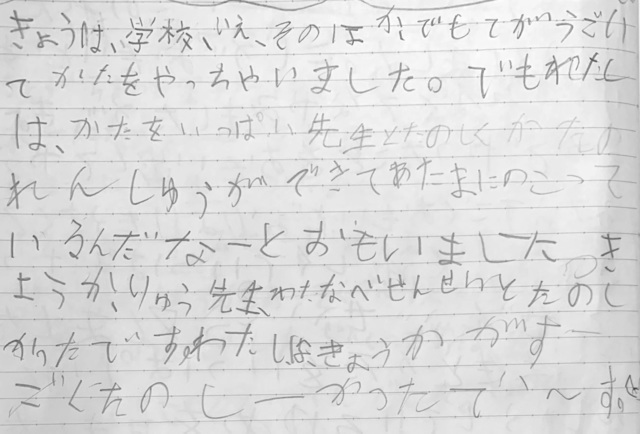 きょうは、学校、いえ、そのほかでもてがうごい
てかたをやっちゃいました。でもわたし
は、かたをいっぱい先生とたのしくかたの
れんしゅうができてあたまにのこって
いるんだなーとおもいました。き
ょうか、りゅう先生、わたなべせんせいとたのし
かったです。わたしは、きょうかがすー
ごくたのしーかったでい〜す。